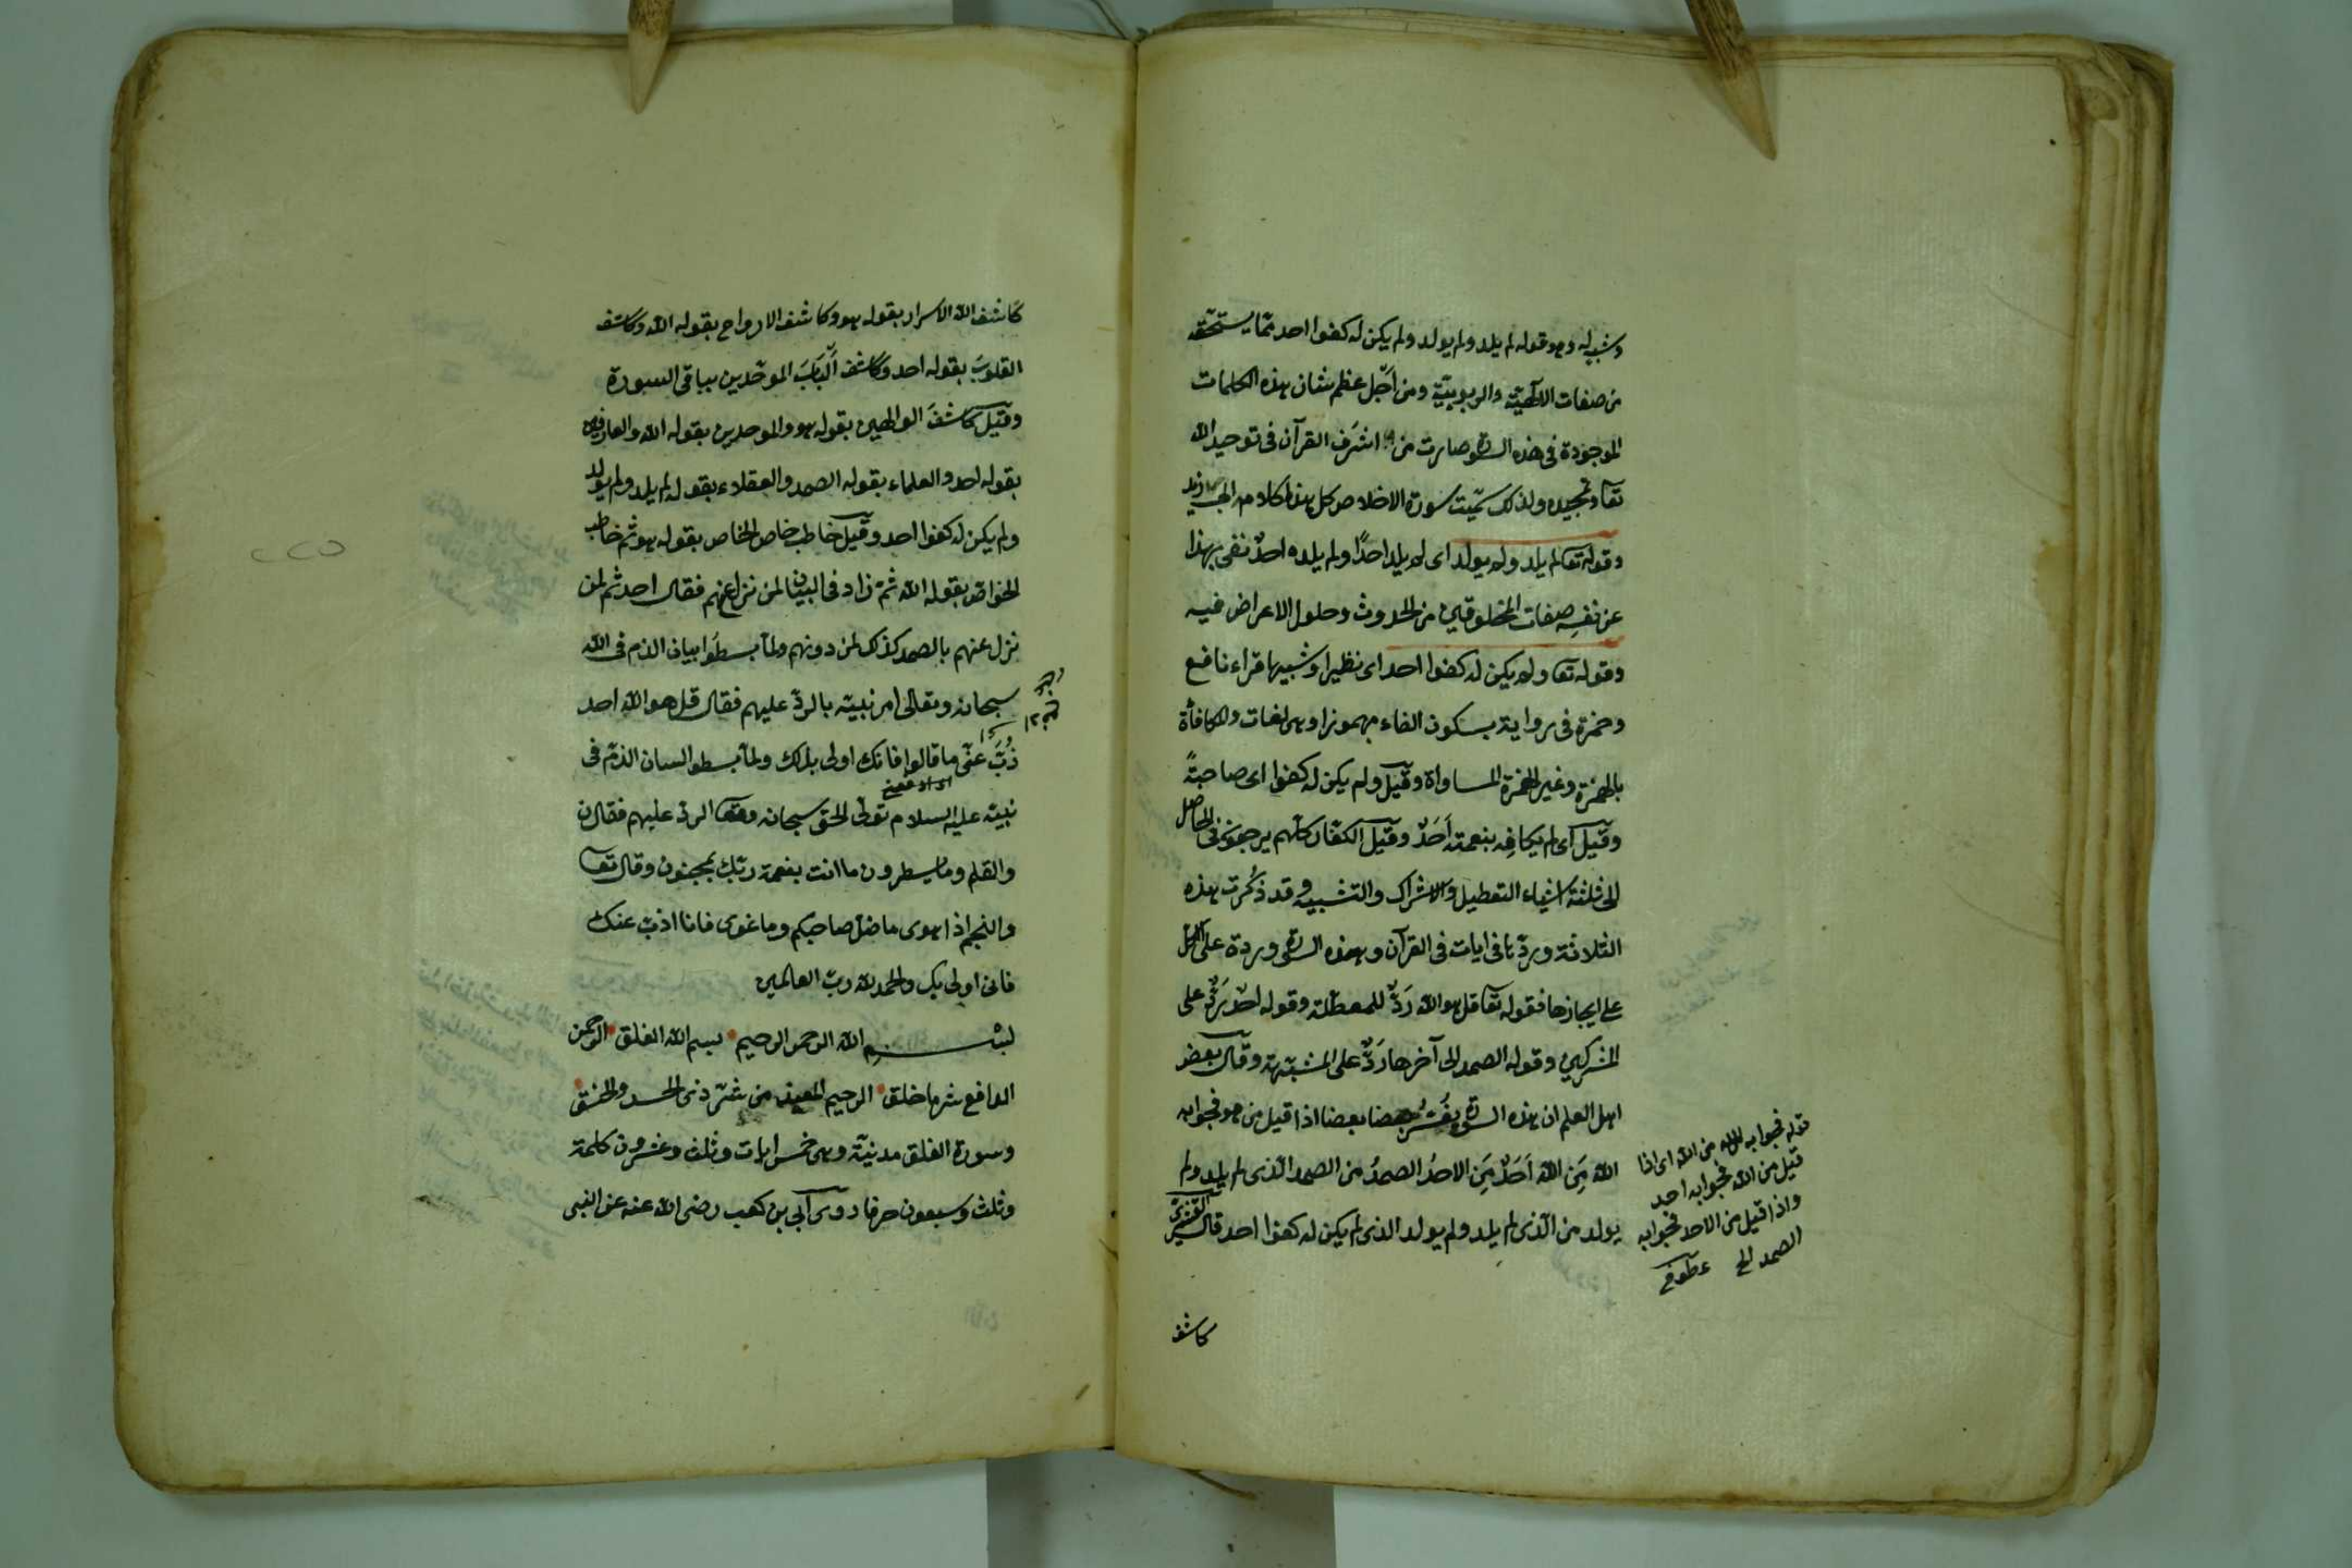 وشبيه له وهو قوله لم يلد ولم يولد ولم يكن له كفوا احد ممّا يستحقه
من صفات الالٓهيّة والربوبيّة ومن اجّل عظم شان هذه الكلمات
الموجودة في هذه السورة صارت من اشرَف القرآن في توحيد الله
تعا وتمجيده ولذلك سمّيت سورة الاخلاص كل هذا الكلام من
وقوله تعا لم يلد ولم يولد اى لم يلد احدًا ولم يلده احدٌ نفى بهذا
عن نفسِه صفات المخلوقين من الحدوث وحلول الاعراض فيه
وقوله تعا ولم يكن له كفوا احد اى نظيرا وشبيها قراء نافع
وحمزة في رواية بسكون الفاء مهموزا وهى لغات والمكافأة
بالهمزة وغير الهمزة المساواة وقيل ولم يكن له كفوا اى صاحبةً
وقيل اى لم يكافِه بنعمته اَحَدٌ وقيل الكفّار كلّهم يرجعون في الحاصل
الى ثلثة اشياء التعطيل والاشراك والتشبيه وقد ذُكرت هذه
الثلاثة وردّها في ايات في القرآن وهذه السورة وردة على الكل
على ايجازها فقوله تعا قل هو الله رَدٌّ للمعطّلة وقوله احد رَدٌّ على
المشركين وقوله الصمد الى آخرها رَدٌّ على المشبّهة وقال بعض
اهل العلم ان هذه السورة يفَسّرُ بعضها بعضا اذا قيل من هو فجوابه
الله مَنِ الله اَحَدٌ مَنِ الاحدُ الصمدُ من الصمد الّذى لم يلد ولم
يولد من الّذى لم يلد ولم يولد الذى لم يكن له كفوا احد قال القشيرى
قوله فجوابه الله من الله اى اذا
قيل من الله فجوابه احد
واذا قيل من الاحد فجوابه
الصمد الخ عطوفى
كاشف
كاشف الله الاسرار بقوله هو وكاشف الارواح بقوله الله وكاشف
القلوبَ بقوله احد وكاشف اَلْبَابَ الموحّدين بباقى السورة
وقيل كاشفَ الوالهين بقوله هو والموحدين بقوله الله والعارفين
بقوله احد والعلماء بقوله الصمد والعقلاء بقوله لم يلد ولم يولد
ولم يكن له كفوا احد وقيل خاطب خاص الخاص بقوله هو ثم خاطب
الخواصّ بقوله الله ثمّ زاد في البيان لمن نزل عنهم فقال احد ثم لمن
نزل عنهم بالصمد كذلك لمن دونهم ولمّا بسطُوا بيان الذم فى الله
سبحانه وتعالى امر نبيّه بالردّ عليهم فقال قل هو الله احد
ذُبَّ عنّى ما قالوا فانك اولى بذلك ولمّا بسطوا لسان الذمّ فى
نبيّه عليه السلام تولّى الحق سبحانه وتعا الردّ عليهم فقال ن
والقلم وما يسطرون ما انت بنعمة ربّك بمجنون وقال تعا
والنجم اذا هوى ما ضلّ صاحبكم وما غوى فانا اذبّ عنك
فانى اولى بك والحمد لله ربّ العالمين
بســـــــم الله الرحمن الرحيم بسم الله الفلق الرحمن
الدافع شر ما خلق الرحيم المعيذ من شرّ ذى الحسد والخنق
وسورة الفلق مدنيّة وهى خمس ايات وثلث وعشرون كلمة
وثلث وسبعون حرفا روى اُبى بن كعب رضى الله عنه عن النبى